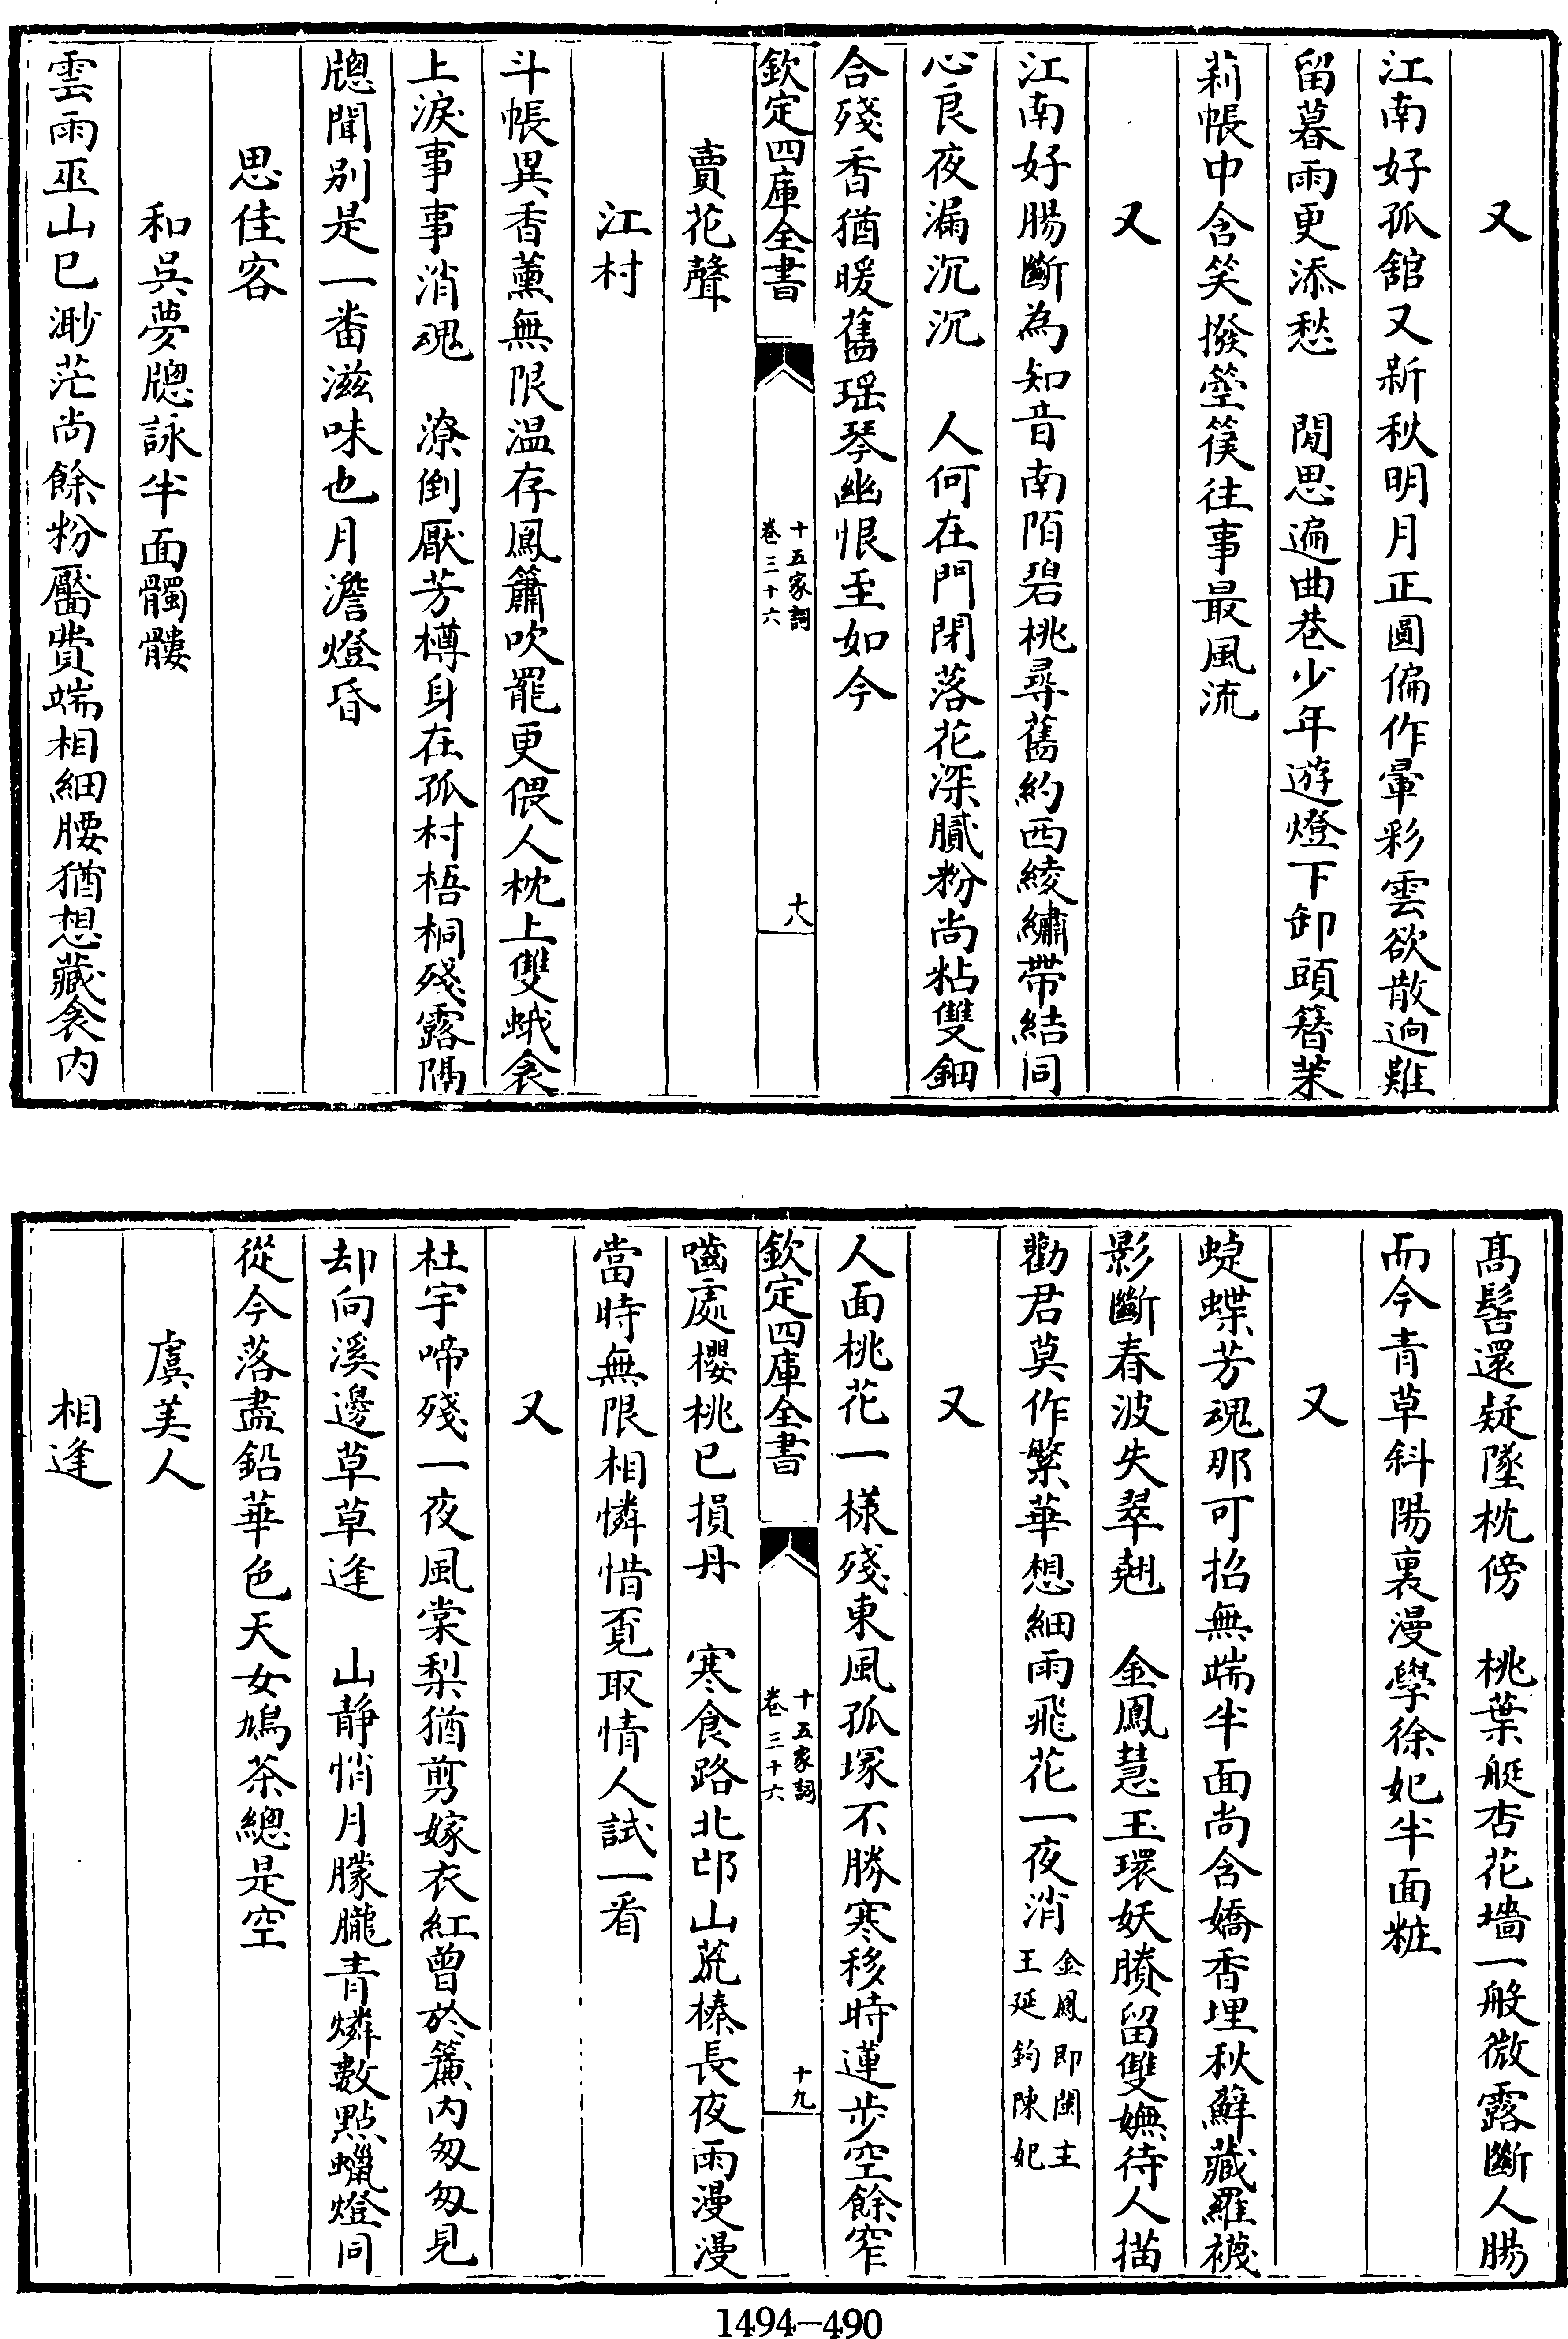 又
江南好孤舘又新秋明月正圓偏作暈彩雲欲散逈難
留暮雨更添愁　閒思遍曲巷少年遊燈下卸頭簪茉
莉帳中含笑撥箜篌往事最風流
又
江南好腸斷為知音南陌碧桃尋舊約西綾繡帶結同
心良夜漏沉沉　人何在門閉落花深膩粉尚粘雙鈿
合殘香猶暖舊瑶琴幽恨至如今
欽定四庫全書
十五家詞
卷三十六
十八
賣花聲
江村
斗帳異香薰無限温存鳳簫吹罷更偎人枕上雙蛾衾
上淚事事消魂　潦倒厭芳樽身在孤村梧桐殘露隔
牕聞别是一番滋味也月澹燈昏
思佳客
和吳夢牕詠半面髑髏
雲雨巫山已渺茫尚餘粉靨費端相細腰猶想藏衾内
髙髻還疑墜枕傍　桃葉艇杏花墻一般微露斷人腸
而今青草斜陽裏漫學徐妃半面粧
又
蜨蝶芳魂那可招無端半面尚含嬌香埋秋蘚藏羅襪
影斷春波失翠翹　金鳳慧玉環妖賸留雙嫵待人描
勸君莫作繁華想細雨飛花一夜消
金鳳即閩主
王延鈞陳妃
又
人面桃花一様殘東風孤塚不勝寒移時蓮步空餘窄
欽定四庫全書
十五家詞
卷三十六
十九
嚙處櫻桃已損丹　寒食路北邙山荒榛長夜雨漫漫
當時無限相憐惜覔取情人試一看
又
杜宇啼殘一夜風棠梨猶剪嫁衣紅曾於簾内匆匆見
却向溪邊草草逢　山静悄月朦朧青燐數點蠟燈同
從今落盡鉛華色天女鳩荼總是空
虞美人
相逢
1494-490